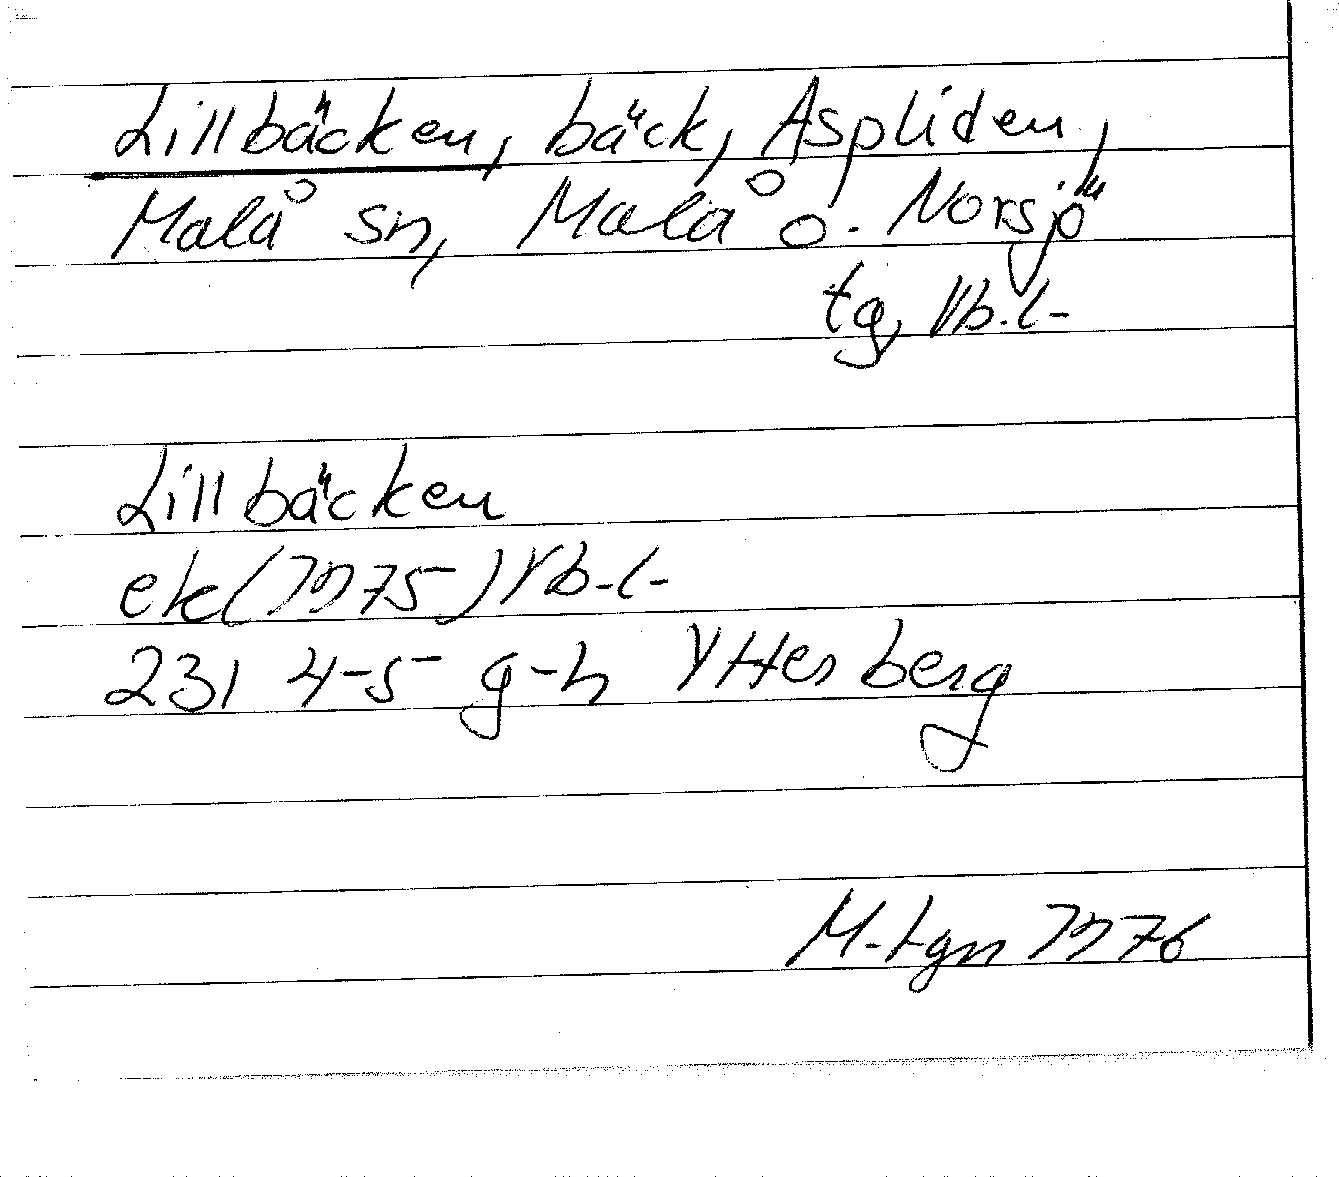 Lillbäcken, bäck, Aspliden,
Malå sn, Malå o. Norsjö
tg, Vb.l-
Lillbäcken
ek(1975)Vb-l-
231 4-5 g-h Ytterberg
M-tgn 1976